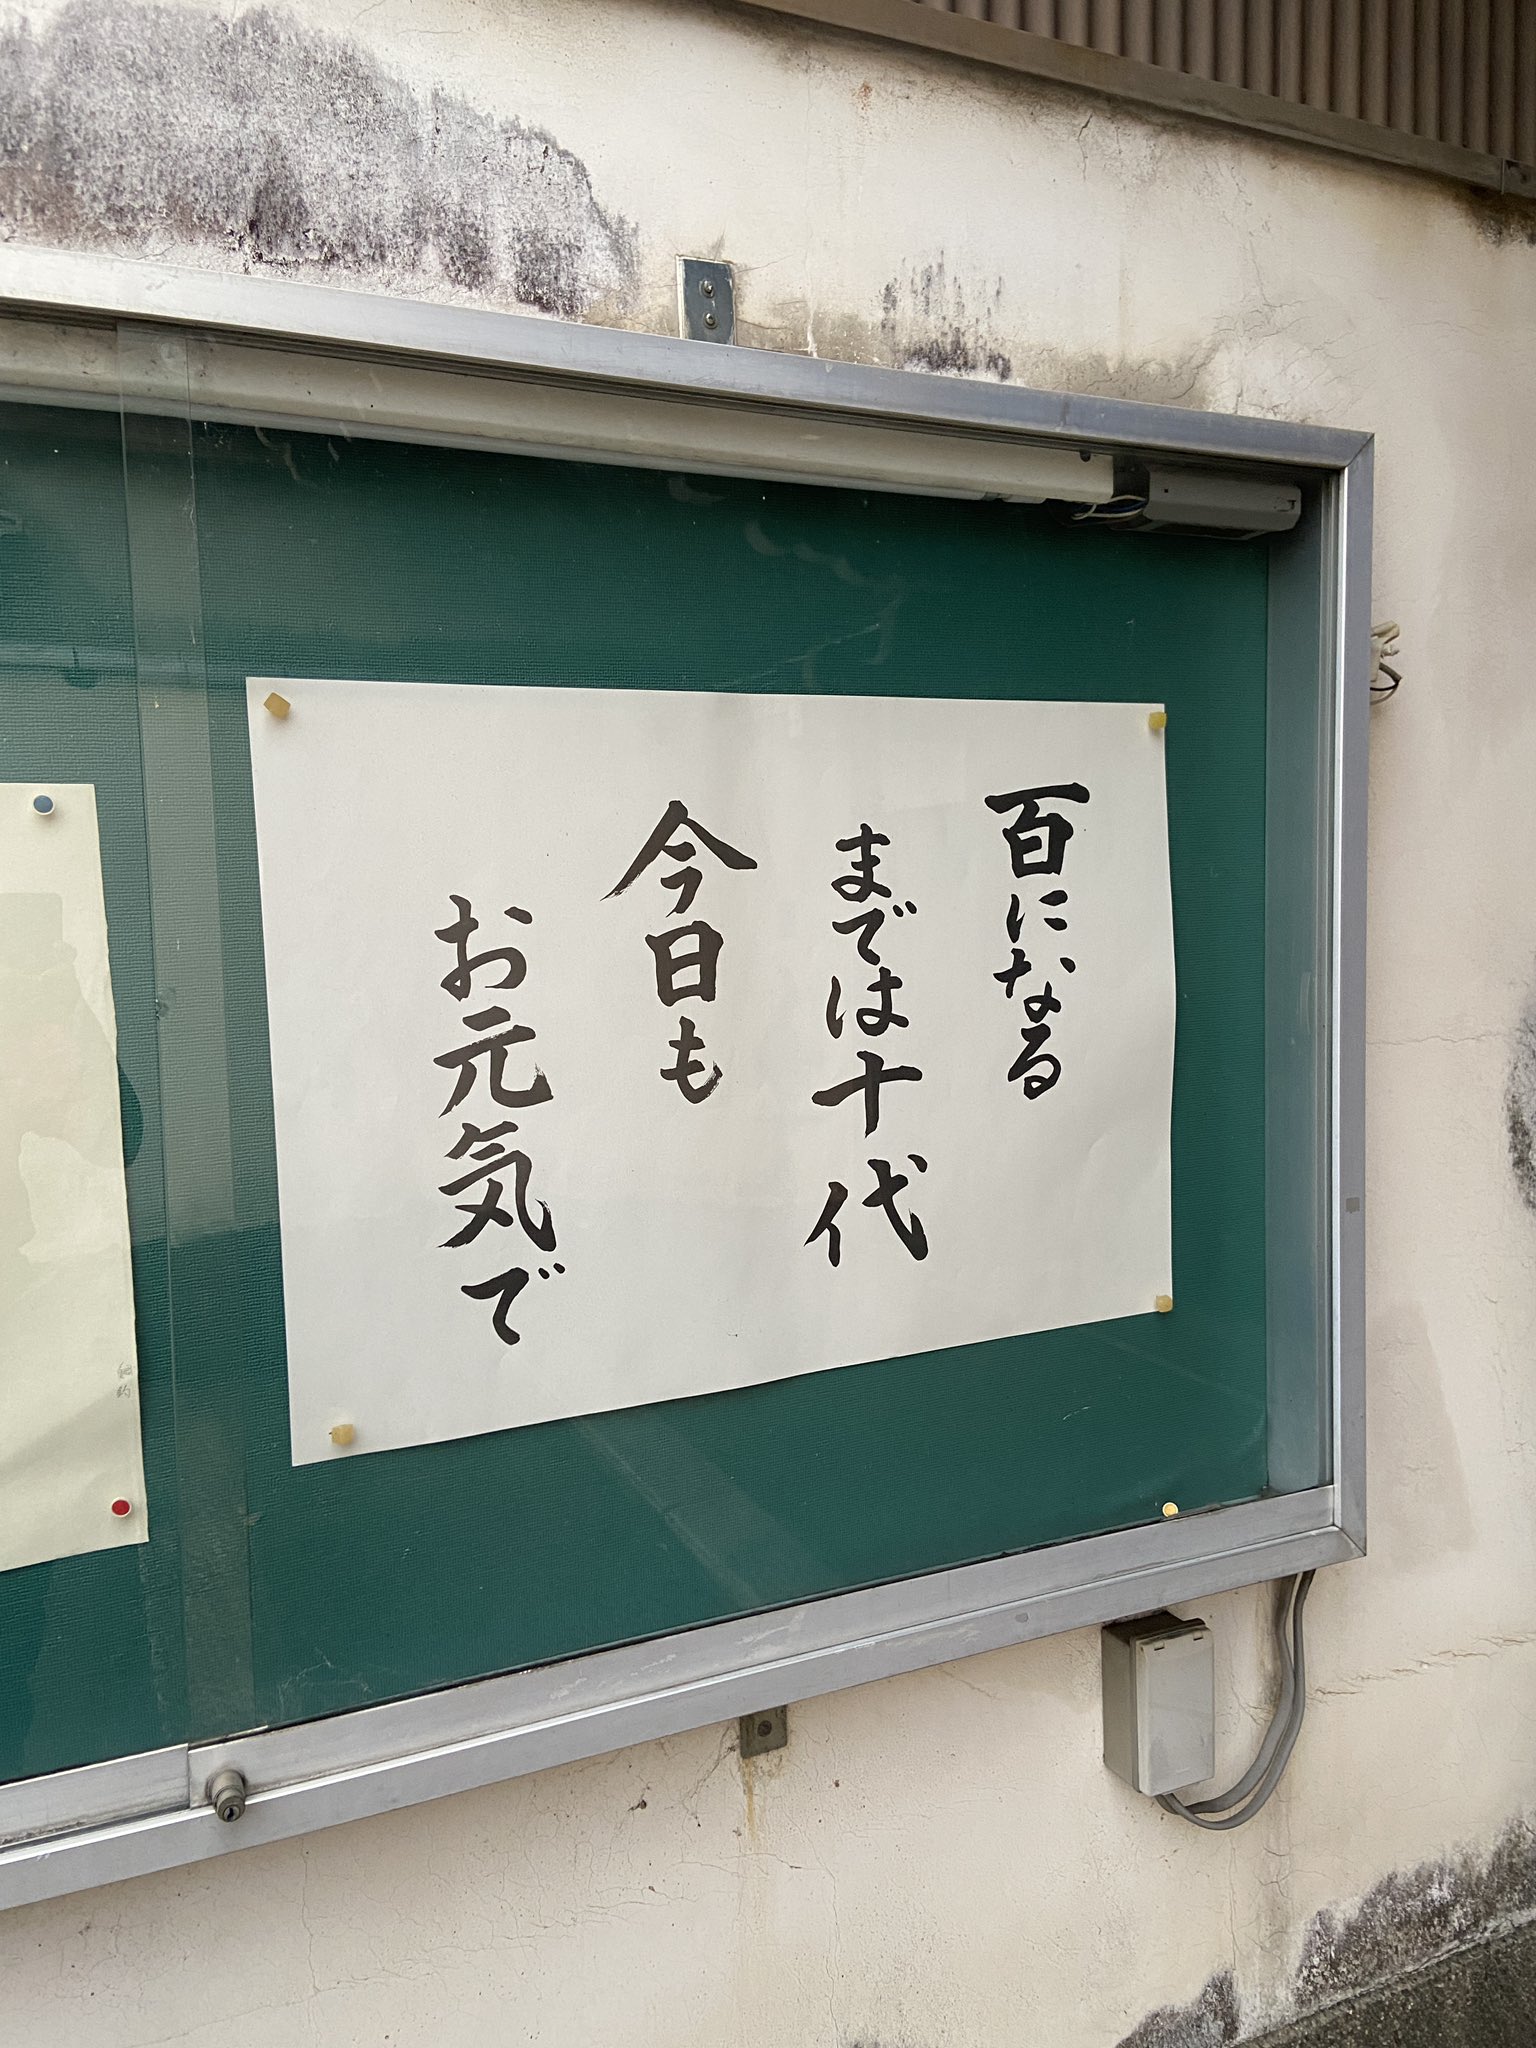 百になる
までは十代
今日も
お元気で